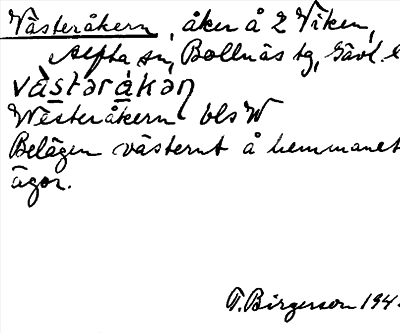 Västeråkern, åker å 2 Viken,
Alfta sn, Bollnäs tg, Gävl. l
västəråkən
Westeråkern bls W
Belägen västerut å hemmanet
ägor.
T. Birgerson 194